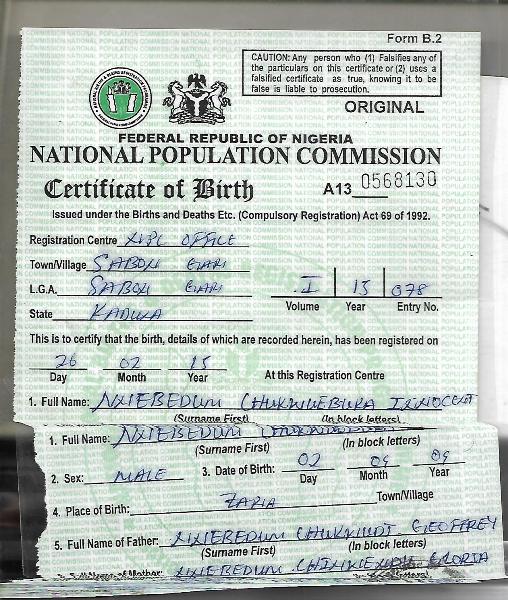 Form B.2
CAUTION: Any person who (1) Falsifies any of the particulars on this certificate or (2) uses a falsified certificate as true, knowing it to be false is liable to prosecution.
ORIGINAL
FEDERAL REPUBLIC OF NIGERIA
NATIONAL POPULATION COMMISSION
Certificate of Birth
A13 0568130
Issued under the Births and Deaths Etc. (Compulsory Registration) Act 69 of 1992.
Registration Centre OFFICE
Town/Village SABON GARI
L.G.A. SABON GARI
I 15 078
Volume Year Entry No.
State KADUNA
This is to certify that the birth, details of which are recorded herein, has been registered on
26 02 15
Day Month Year At this Registration Centre
1. Full Name: INNOCENT
(Surname First) (In block letters)
1. Full Name:
(Surname First) (In block letters)
2. Sex: MALE 3. Date of Birth: 02 09 09
Day Month Year
4. Place of Birth: ZARIA Town/Village
5. Full Name of Father: GEOFFREY
(Surname First) (In block letters)